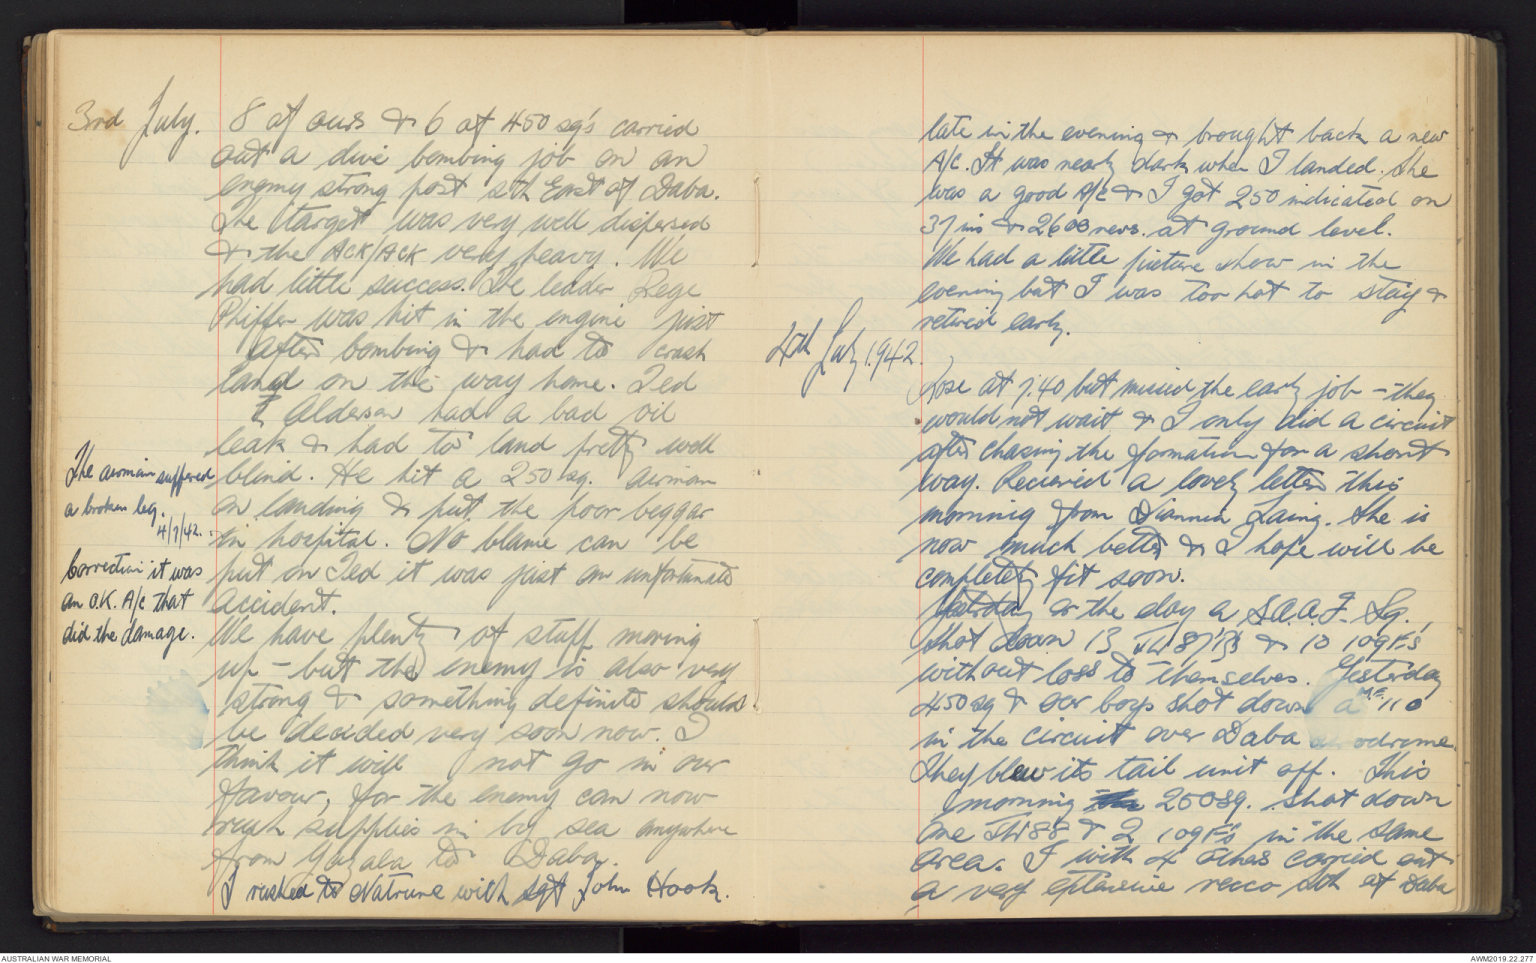 3rd July. 8 of ours & 6 of 450 sq's carried
out a dive bombing job on an
enemy strong post sth East of Daba.
The target was very well dispersed
& the ACK/ACK very heavy. We
had little success. The leader Rege
Phiffer was hit in the engine just
after bombing & had to crash
land on the way home. Ted
Alderson had a bad oil
leak & had to land pretty well
blind. He hit a 250 sq. airman
on landing & put the poor beggar
in hospital. No blame can be
put on Ted it was just an unfortunate
accident.
The airman suffered
a broken leg.
4/7/42.
Correction it was
an O.K. A/c that
did the damage.
We have plenty of stuff moving
up - but the enemy is also very
strong & something definite should
be decided very soon now. I
think it will not go in our
favour, for the enemy can now
rush supplies in by sea anywhere
from Gazala to Daba.
I rushed to Natrune with Sgt John Hook.
late in the evening & brought back a new
A/c. It was nearly dark when I landed. She
was a good A/c & I got 250 indicated on
37 ins & 2600 revs. at ground level.
We had a little picture show in the
evening but I was too hot to stay &
retired early.
4th July 1942.
Rose at 7.40 but missed the early job - they
would not wait & I only did a circuit
after chasing the formation for a short
way. Recieved a lovely letter this
morning from Diannea Laing. She is
now much better & I hope will be
completely fit soon.
Yesterday or the day a S.A.A.F. Sq.,
shot down 13 JU 87's & 10 109F's
without loss to themselves. Yesterday
450 sq & our boys shot down a ME 110
in the circuit over Daba aerodrome.
They blew its tail unit off. This
morning 250 sq. shot down
one JU 88 & 2 109F's in the same
area. I with 4 others carried out
a very extensive recco sth of Daba
AUSTRALIAN WAR MEMORIAL
AWM2019.22.277